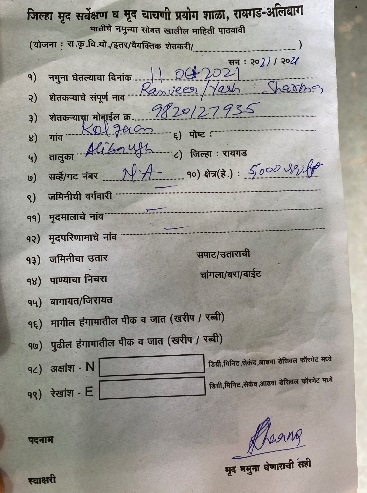 जिल्हा मृद सर्वेक्षण व मृद चाचणी प्रयोग शाळा, रायगड-अलिबाग
मातीचे नमुन्या सोबत खालील माहिती पाठवावी
(योजना : रा.कृ.वि.यो/इतर/वैयक्तिक शेतकरी/ )
सन : २०२१/ २०२१
१) नमुना घेतल्याचा दिनांक 11 Oct 2021
२) शेतकऱ्याचे संपूर्ण नाव Ranveer/Yash Sharma
३) शेतकऱ्याचा मोबाईल क्र. 9820127935
४) गांव Kolgaon ६) पोष्ट :
५) तालुका Alibaugh ८) जिल्हा : रायगड
७) सर्व्हे/गट नंबर N.A- १०) क्षेत्र(हे.) : 5,000 sq.ft
९) जमिनीची वर्गवारी
११) मृदमालाचे नांव
१२) मृदपरिणामाचे नांव
१३) जमिनीचा उतार सपाट/उताराची
१४) पाण्याचा निचरा चांगला/बरा/वाईट
१५) बागायत/जिरायत
१६) मागील हंगामातील पीक व जात (खरीप / रब्बी)
१७) पुढील हंगामातील पीक व जात (खरीप / रब्बी)
१८) अक्षांश - N डिग्री,मिनिट,सेकंद,आठवा डेसिमल फॉरमेट मध्ये
१९) रेखांश - E डिग्री,मिनिट,सेकंद,आठवा डेसिमल फॉरमेट मध्ये
पदनाम
स्वाक्षरी मृद नमुना घेणाराची सही